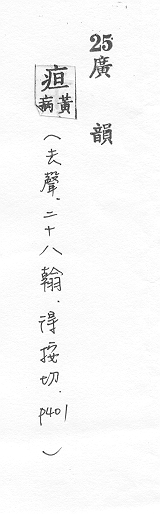 25廣韻
疸黃病
(去聲.二十八翰.得按切.p401)